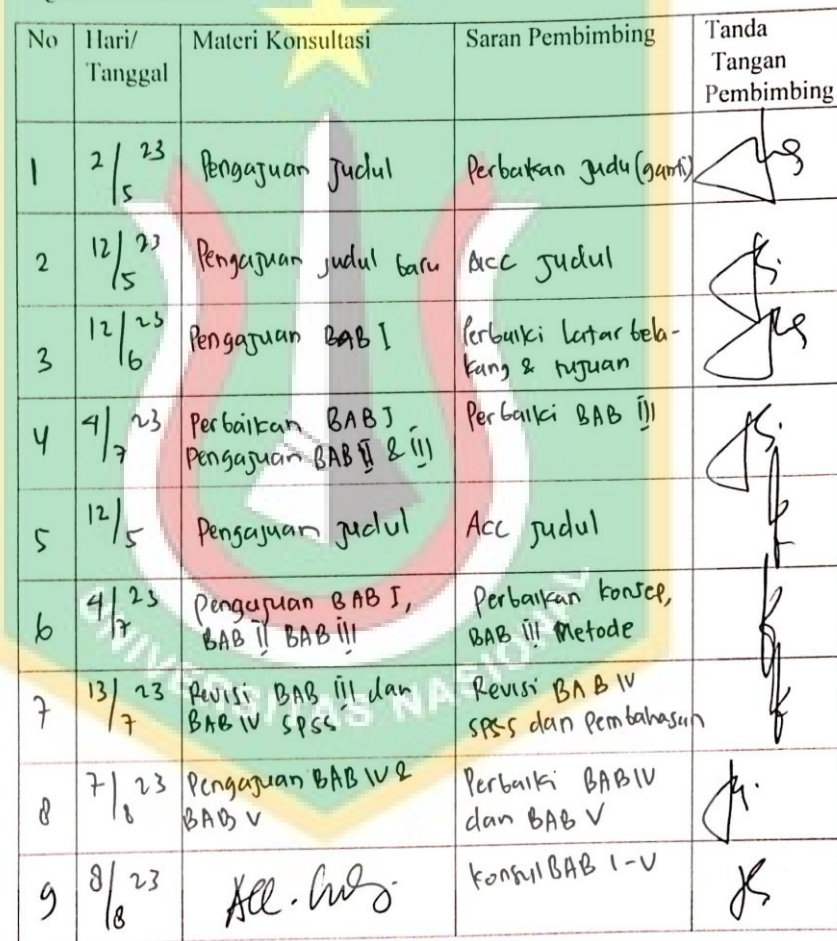 No Hari/ Materi Konsultasi Saran Pembimbing Tanda
Tanggal Tangan
Pembimbing
1 2/5 23 Pengajuan Judul Perbaikan Judu (ganti)
2 12/5 23 Pengajuan judul baru Acc Judul
3 12/6 23 Pengajuan BAB I Perbaiki latar bela-
kang & tujuan
4 4/7 23 Perbaikan BAB I Perbaiki BAB III
Pengajuan BAB II & III
5 12/5 Pengajuan Judul Acc Judul
6 4/7 23 Pengajuan BAB I, Perbaikan konsep,
BAB II BAB III BAB III Metode
7 13/7 23 Revisi BAB III dan Revisi BAB IV
BAB IV SPSS SPSS dan Pembahasan
8 7/8 23 Pengajuan BAB IV & Perbaiki BAB IV
BAB V dan BAB V
9 8/8 23 konsul BAB I-V
UNIVERSITAS NASIONAL